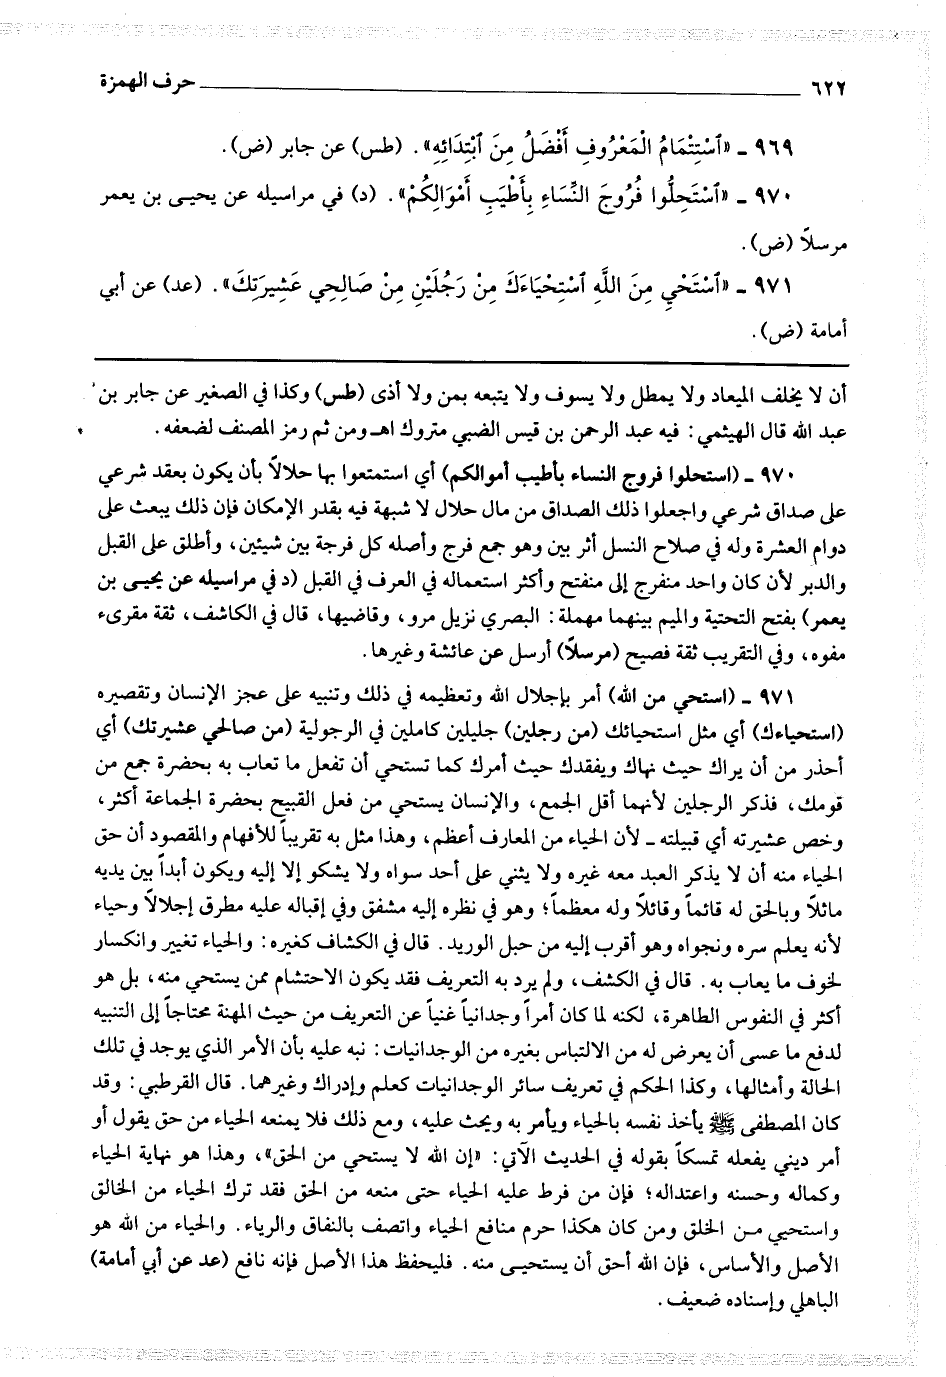 ٦٢٢ حرف الهمزة
٩٦٩ ـ «ٱسْتِتْمَامُ الْمَعْرُوفِ أَفْضَلُ مِنَ ٱبْتِدَائِهِ». (طس) عن جابر (ض).
٩٧٠ ـ «ٱسْتَحِلُّوا فُرُوجَ النِّسَاءِ بِأَطْيَبِ أَمْوَالِكُمْ». (د) في مراسيله عن يحيى بن يعمر
مرسلاً (ض).
٩٧١ ـ «ٱسْتَحْيِ مِنَ اللَّهِ ٱسْتِحْيَاءَكَ مِنْ رَجُلَيْنِ مِنْ صَالِحِي عَشِيرَتِكَ». (عد) عن أبي
أمامة (ض).
أن لا يخلف الميعاد ولا يمطل ولا يسوف ولا يتبعه بمن ولا أذى (طس) وكذا في الصغير عن جابر بن
عبد الله قال الهيثمي: فيه عبد الرحمن بن قيس الضبي متروك اهـ ومن ثم رمز المصنف لضعفه.
٩٧٠ ـ (استحلوا فروج النساء بأطيب أموالكم) أي استمتعوا بها حلالاً بأن يكون بعقد شرعي
على صداق شرعي واجعلوا ذلك الصداق من مال حلال لا شبهة فيه بقدر الإمكان فإن ذلك يبعث على
دوام العشرة وله في صلاح النسل أثر بين وهو جمع فرج وأصله كل فرجة بين شيئين، وأطلق على القبل
والدبر لأن كان واحد منفرج إلى منفتح وأكثر استعماله في العرف في القبل (د في مراسيله عن يحيى بن
يعمر) بفتح التحتية والميم بينهما مهملة: البصري نزيل مرو، وقاضيها، قال في الكاشف، ثقة مقرىء
مفوه، وفي التقريب ثقة فصيح (مرسلاً) أرسل عن عائشة وغيرها.
٩٧١ ـ (استحي من الله) أمر بإجلال الله وتعظيمه في ذلك وتنبيه على عجز الإنسان وتقصيره
(استحياءك) أي مثل استحيائك (من رجلين) جليلين كاملين في الرجولية (من صالحي عشيرتك) أي
أحذر من أن يراك حيث نهاك ويفقدك حيث أمرك كما تستحي أن تفعل ما تعاب به بحضرة جمع من
قومك، فذكر الرجلين لأنهما أقل الجمع، والإنسان يستحي من فعل القبيح بحضرة الجماعة أكثر،
وخص عشيرته أي قبيلته ـ لأن الحياء من المعارف أعظم، وهذا مثل به تقريباً للأفهام والمقصود أن حق
الحياء منه أن لا يذكر العبد معه غيره ولا يثني على أحد سواه ولا يشكو إلا إليه ويكون أبداً بين يديه
ماثلاً وبالحق له قائماً وقائلاً وله معظماً؛ وهو في نظره إليه مشفق وفي إقباله عليه مطرق إجلالاً وحياء
لأنه يعلم سره ونجواه وهو أقرب إليه من حبل الوريد. قال في الكشاف كغيره: والحياء تغيير وانكسار
لخوف ما يعاب به. قال في الكشف، ولم يرد به التعريف فقد يكون الاحتشام ممن يستحي منه، بل هو
أكثر في النفوس الطاهرة، لكنه لما كان أمراً وجدانياً غنياً عن التعريف من حيث المهنة محتاجاً إلى التنبيه
لدفع ما عسى أن يعرض له من الالتباس بغيره من الوجدانيات: نبه عليه بأن الأمر الذي يوجد في تلك
الحالة وأمثالها، وكذا الحكم في تعريف سائر الوجدانيات كعلم وإدراك وغيرهما. قال القرطبي: وقد
كان المصطفى ﷺ يأخذ نفسه بالحياء ويأمر به ويحث عليه، ومع ذلك فلا يمنعه الحياء من حق يقول أو
أمر ديني يفعله تمسكاً بقوله في الحديث الآتي: «إن الله لا يستحي من الحق»، وهذا هو نهاية الحياء
وكماله وحسنه واعتداله؛ فإن من فرط عليه الحياء حتى منعه من الحق فقد ترك الحياء من الخالق
واستحيي مـن الخلق ومن كان هكذا حرم منافع الحياء واتصف بالنفاق والرياء. والحياء من الله هو
الأصل والأساس، فإن الله أحق أن يستحيـى منه. فليحفظ هذا الأصل فإنه نافع (عد عن أبي أمامة)
الباهلي وإسناده ضعيف.